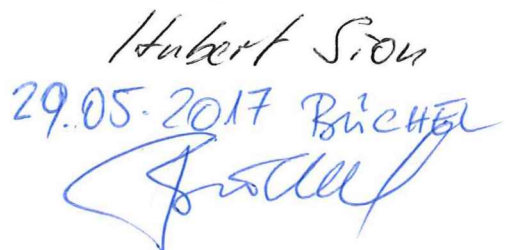 Hubert Sion
29.05.2017 BÜCHEL